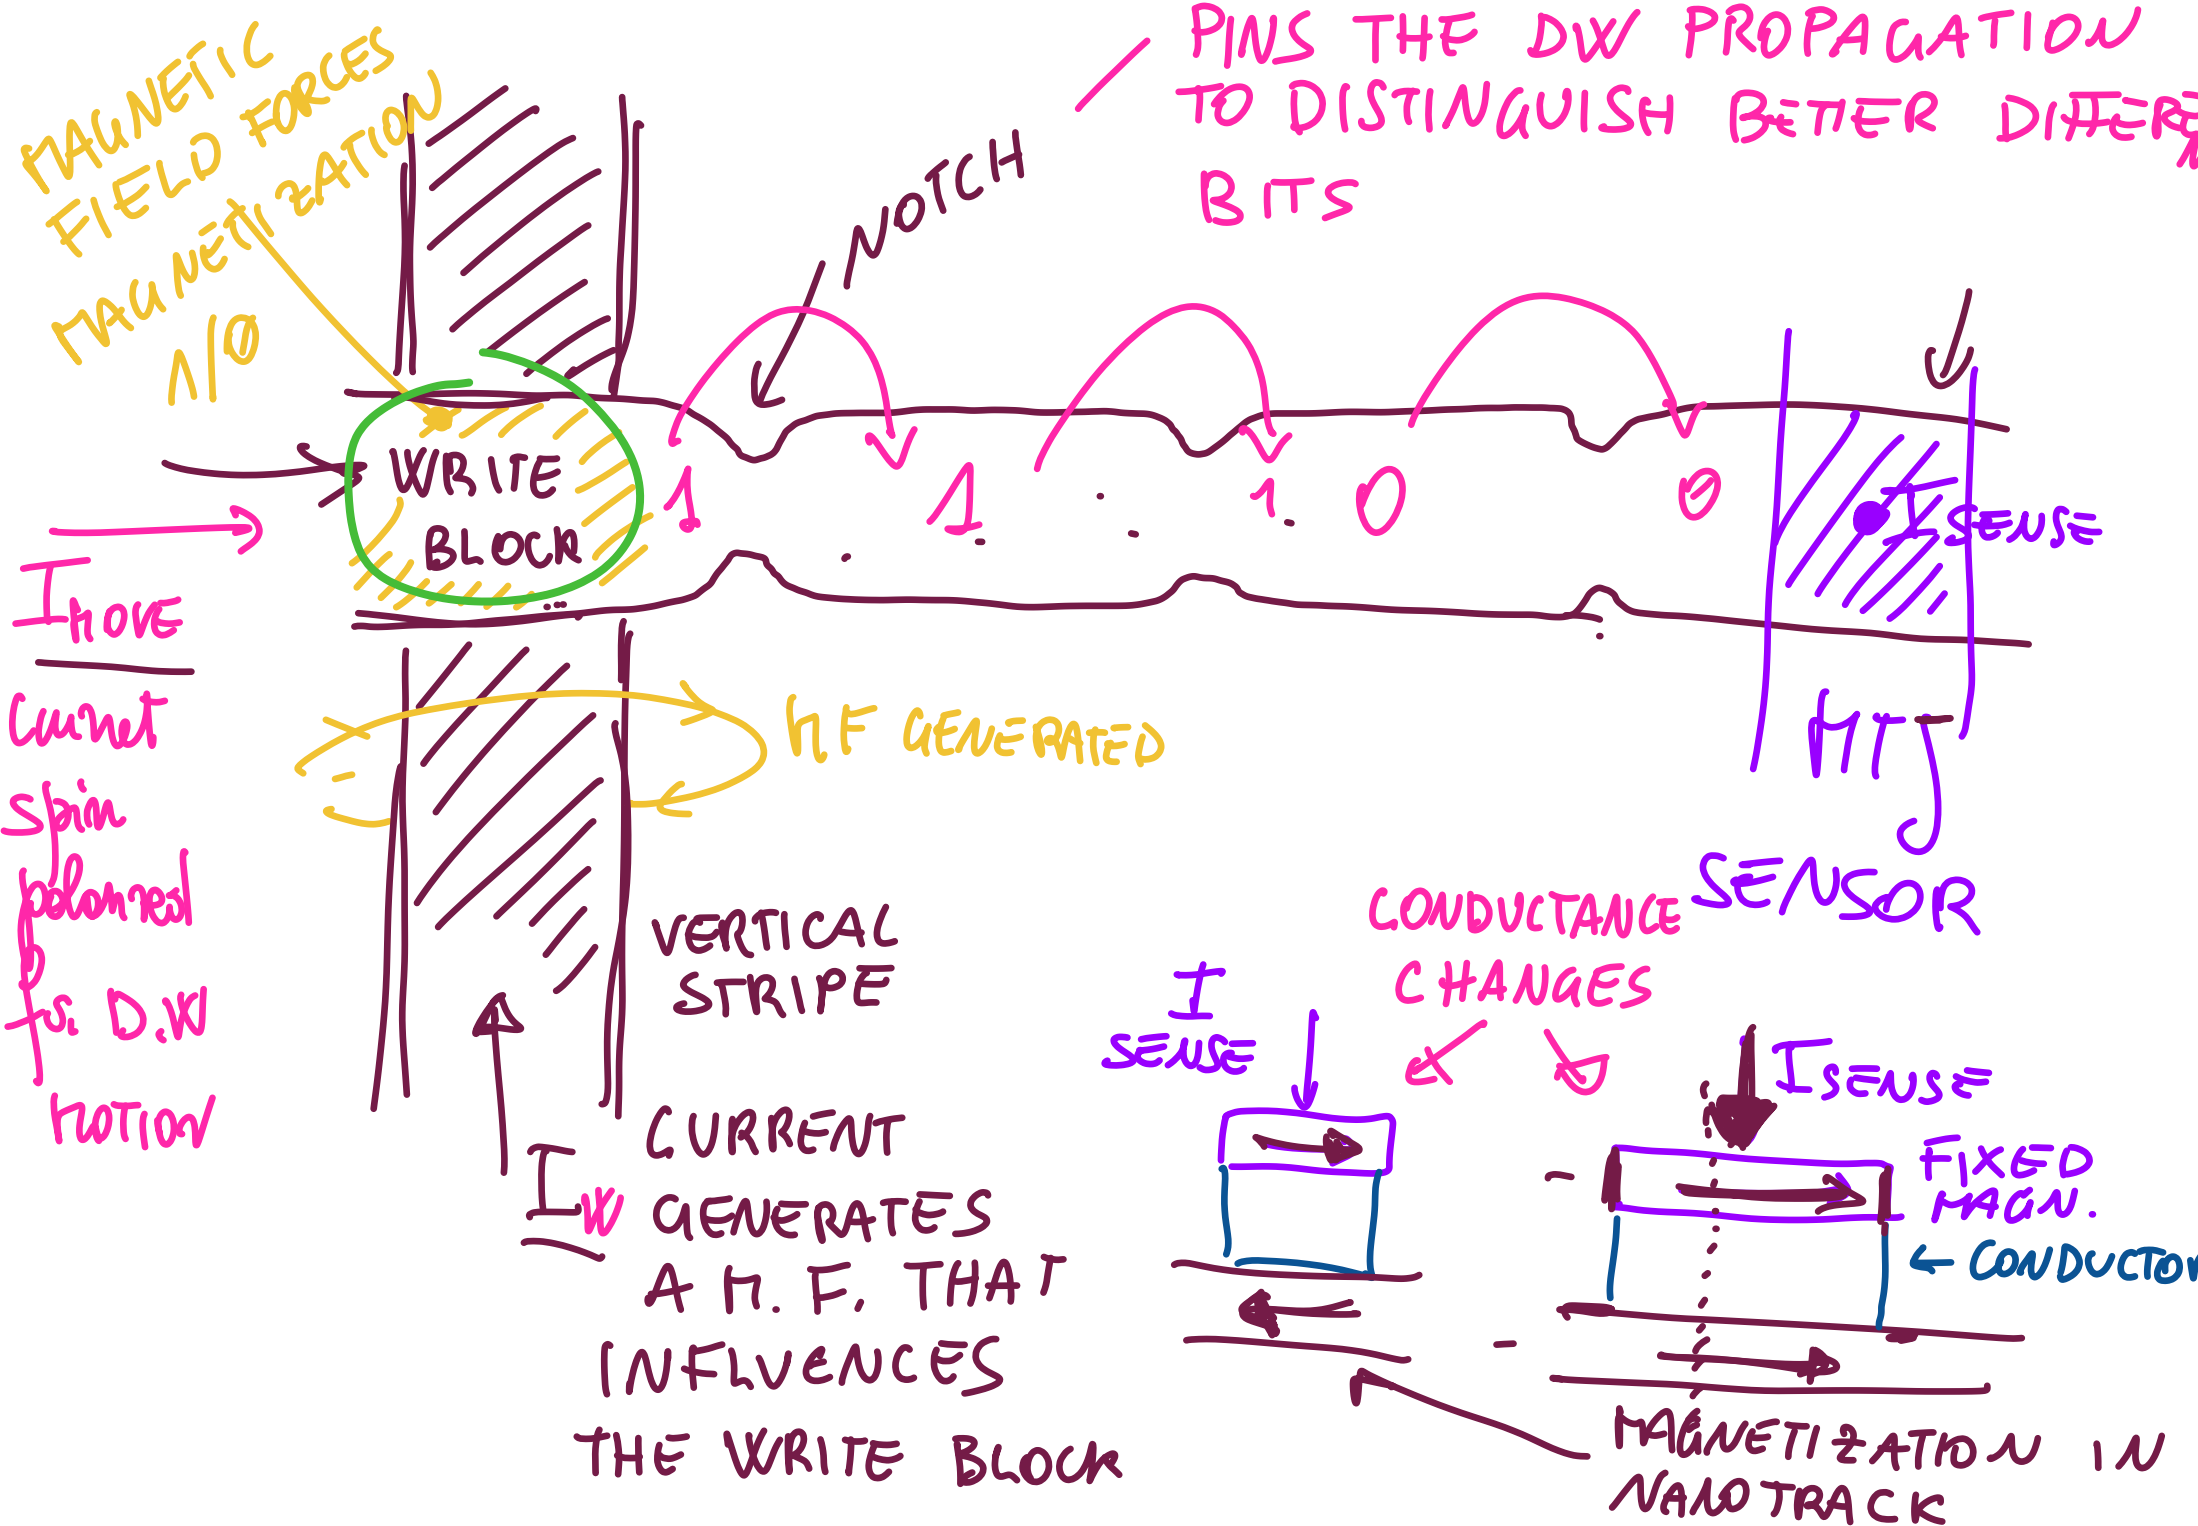 MAGNETIC
FIELD FORCES
MAGNETIZATION
1/0
NOTCH
PINS THE DW PROPAGATION
TO DISTINGUISH BETTER
BITS
WRITE
BLOCK
1
1
1
0
0
I SENSE
I MOVE
Current
Spin
polarized
D.W
MOTION
M.F GENERATED
MTJ
SENSOR
VERTICAL
STRIPE
IW
CURRENT
GENERATES
A M. F. THAT
INFLUENCES
THE WRITE BLOCK
CONDUCTANCE
CHANGES
I
SENSE
I SENSE
FIXED
MAGN.
CONDUCTOR
MAGNETIZATION IN
NANOTRACK